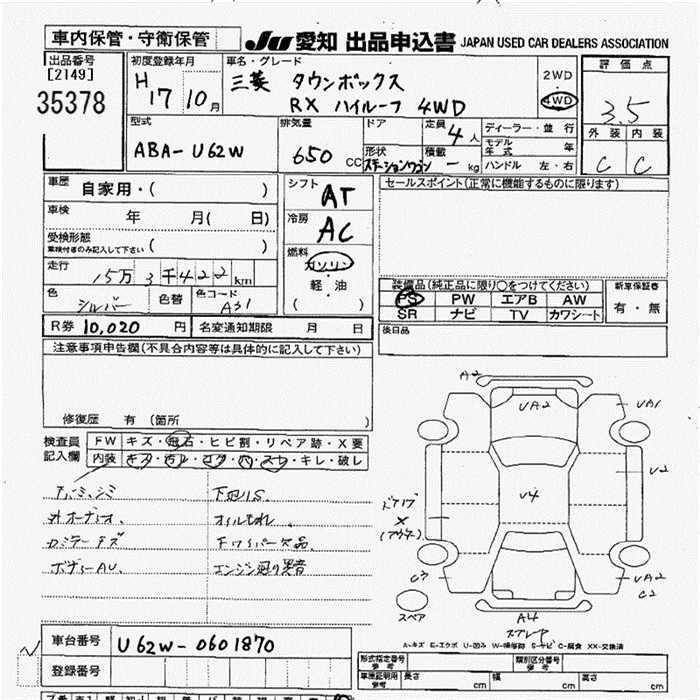 車内保管・守衛保管
JU 愛知 出品申込書 JAPAN USED CAR DEALERS ASSOCIATION
出品番号
[2149]
35378
初度登録年月
H 17 10月
車名・グレード
三菱 タウンボックス
RX ハイルーフ 4WD
2WD
4WD
評価点
3.5
外装 内装
C C
型式
ABA-U62W
排気量
650 CC
ドア
定員 4人
形状
ステーションワゴン
積載 - kg
ディーラー・並行
モデル年式 年
ハンドル 左・右
車歴 自家用・( )
車検 年 月( 日)
受検形態
車検付きのみ記入して下さい ( )
走行 15万3千422km
色 シルバー
色替
色コード A31
R券 10,020 円
名変通知期限 月 日
シフト
AT
冷房
AC
燃料
ガソリン
軽・油
( )
セールスポイント(正常に機能するものに限ります)
装備品(純正品に限り○をつけてください)
PS PW エアB AW
SR ナビ TV カワシート
新車保証書
有・無
後日品
注意事項申告欄(不具合内容等は具体的に記入して下さい)
修復歴 有 (箇所 )
検査員
記入欄
FW キズ・飛石・ヒビ割・リペア跡・X要
内装 キズ・汚れ・コゲ・穴・スレ・キレ・破レ
下回りS
外オーディオ、
オイルもれ、
Fワイパー欠品
ボディーAU、
エンジン廻り異音
A2
UA2
UA1
U2
U4
ドアバイブ
X
(アウター)
UA2
C2
スペア
A4
A-キズ E-エクボ U-凹み W-補修跡 S-サビ C-腐食 XX-交換済
車台番号 U62W-0601870
登録番号
形式指定番号
参考
類別区分番号
参考
車庫証明用
参考
長さ cm 幅 cm 高さ cm